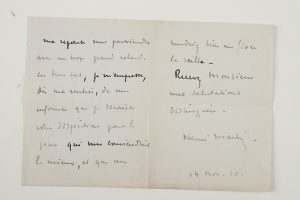 ma réponse vous parviendra
avec un trop grand retard.
en tous cas, je m'empresse,
dès ma rentrée, de vous
informer que je serai à
votre disposition pour le
jour qui vous conviendrait
le mieux, et que vous
voudriez bien me fixer
la veille.
Recevez Monsieur
mes salutations
Distinguées.
Henri Martin
14 Nov. 10.